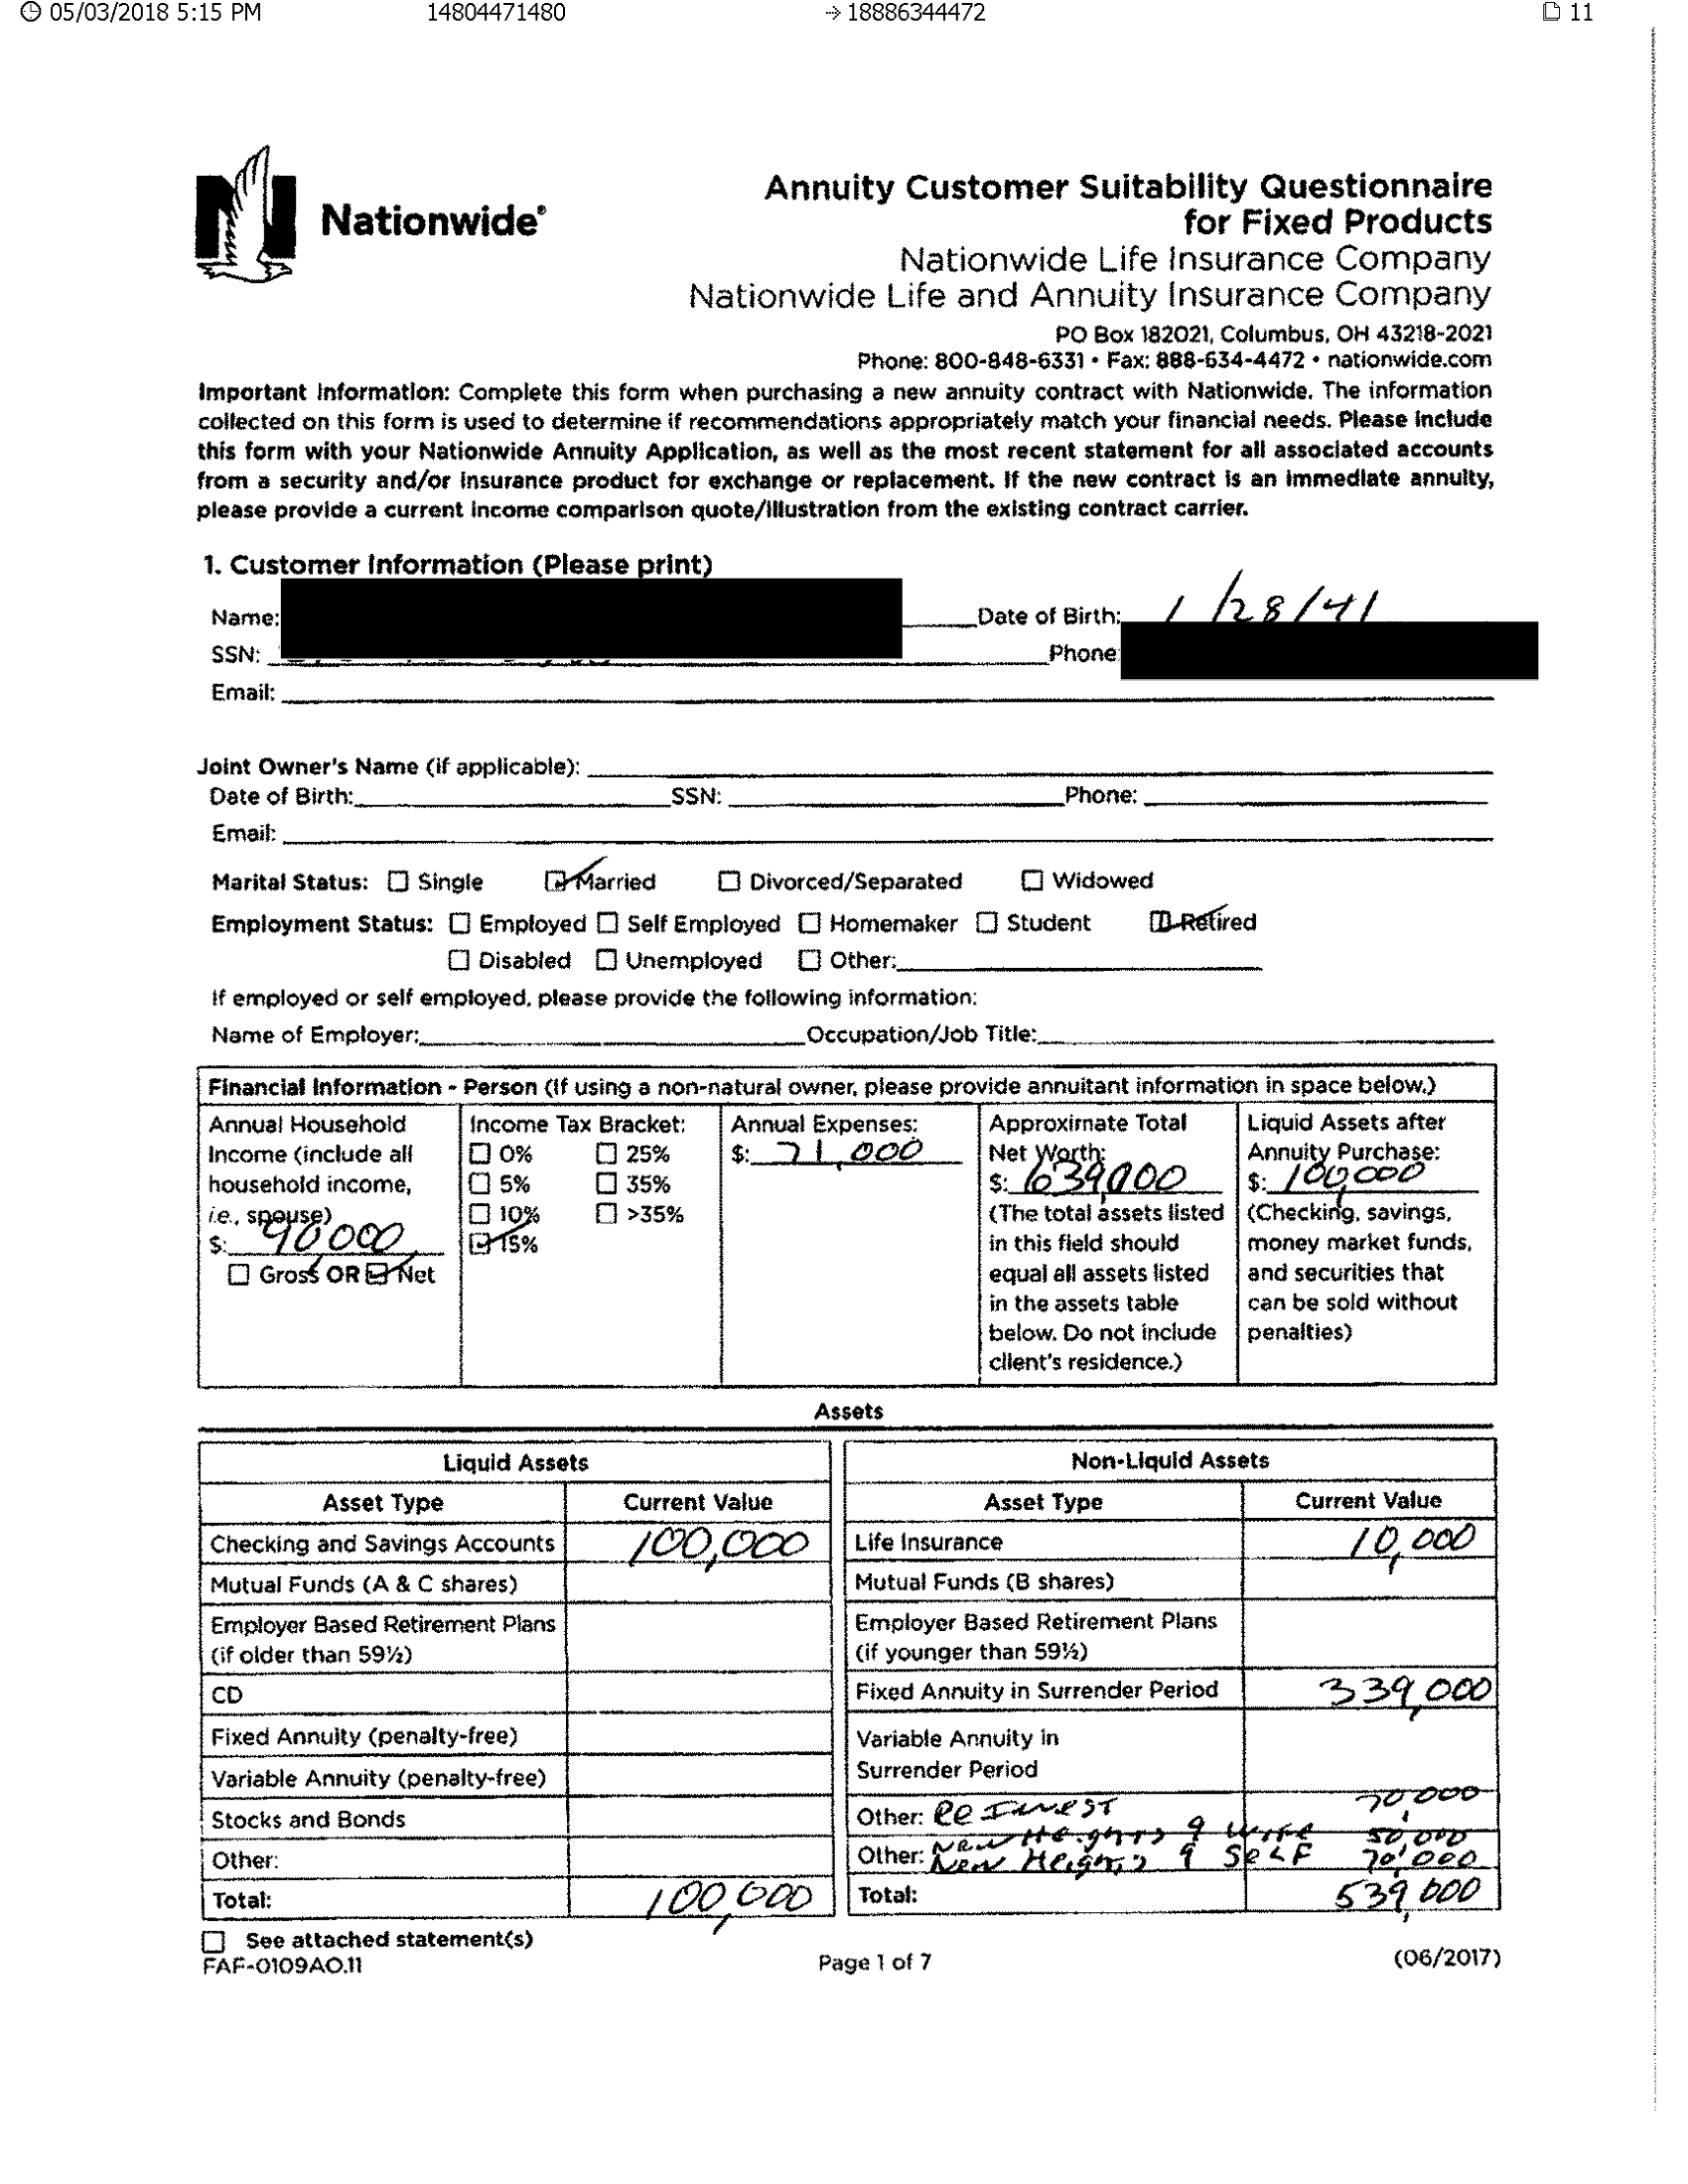 05/03/2018 5:15 PM 14804471480 -> 18886344472 11
Nationwide®
Annuity Customer Suitability Questionnaire
for Fixed Products
Nationwide Life Insurance Company
Nationwide Life and Annuity Insurance Company
PO Box 182021, Columbus, OH 43218-2021
Phone: 800-848-6331 • Fax: 888-634-4472 • nationwide.com
Important Information: Complete this form when purchasing a new annuity contract with Nationwide. The information
collected on this form is used to determine if recommendations appropriately match your financial needs. Please include
this form with your Nationwide Annuity Application, as well as the most recent statement for all associated accounts
from a security and/or insurance product for exchange or replacement. If the new contract is an immediate annuity,
please provide a current income comparison quote/illustration from the existing contract carrier.
1. Customer Information (Please print)
Name: Date of Birth: 1/28/41
SSN: Phone
Email:
Joint Owner's Name (if applicable):
Date of Birth: SSN: Phone:
Email:
Marital Status: Single Married Divorced/Separated Widowed
Employment Status: Employed Self Employed Homemaker Student Retired
Disabled Unemployed Other:
If employed or self employed, please provide the following information:
Name of Employer: Occupation/Job Title:
Financial Information - Person (If using a non-natural owner, please provide annuitant information in space below.)
Annual Household
Income (include all
household income,
i.e., spouse)
$: 90,000
Gross OR Net
Income Tax Bracket:
0% 25%
5% 35%
10% >35%
15%
Annual Expenses:
$: 71,000
Approximate Total
Net Worth:
$: 639,000
(The total assets listed
in this field should
equal all assets listed
in the assets table
below. Do not include
client's residence.)
Liquid Assets after
Annuity Purchase:
$: 100,000
(Checking, savings,
money market funds,
and securities that
can be sold without
penalties)
Assets
Liquid Assets
Asset Type Current Value
Checking and Savings Accounts 100,000
Mutual Funds (A & C shares)
Employer Based Retirement Plans
(if older than 59½)
CD
Fixed Annuity (penalty-free)
Variable Annuity (penalty-free)
Stocks and Bonds
Other:
Total: 100,000
Non-Liquid Assets
Asset Type Current Value
Life Insurance 10,000
Mutual Funds (B shares)
Employer Based Retirement Plans
(if younger than 59½)
Fixed Annuity in Surrender Period 339,000
Variable Annuity in
Surrender Period
Other: Re Invest 70,000
New Heights 9 wife 50,000
Other: New Heights 9 Self 70,000
Total: 539,000
See attached statement(s)
FAF-0109AO.11 Page 1 of 7 (06/2017)